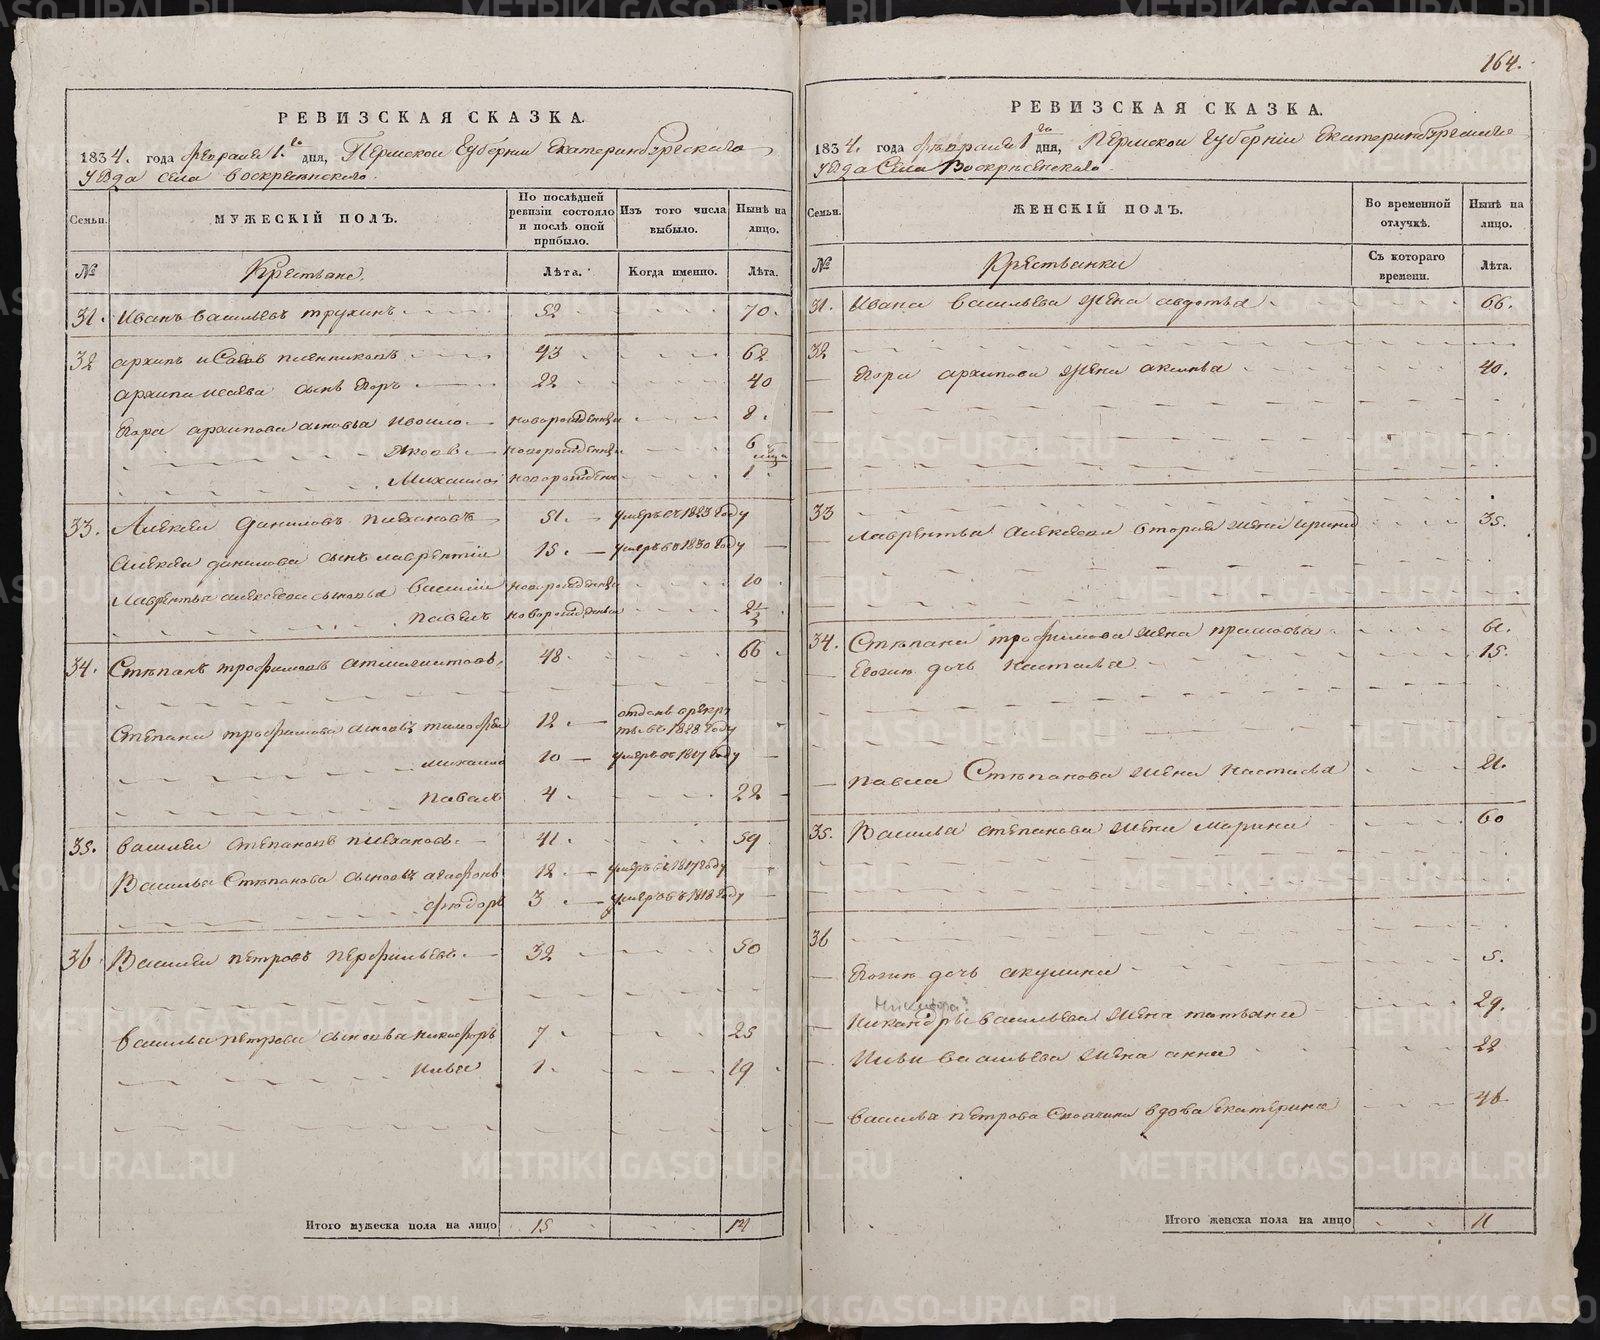 РЕВИЗСКАЯ СКАЗКА.
1834. года февраля 1.го дня, Пермской Губернии Екатеринбургскаго
уѣзда села Воскресенскаго.
Семьи. МУЖЕСКІЙ ПОЛЪ. По послѣдней ревизіи состояло и послѣ оной прибыло. Изъ того числа выбыло. Нынѣ на лицо.
№ Крестьяне. Лѣта. Когда именно. Лѣта.
31. Иванъ Васильевъ Трухинъ 52 70.
32 Архипъ Исаевъ 43 62
Архипа Исаева сынъ Егоръ 22 40
Егора Архипова сыновья новорожденны 8.
Яковъ новорожденны 6
Михаило новорожденъ 1
33. Алексей Даниловъ 51. умеръ въ 1823 году
Алексея Данилова сынъ Лаврентий 15. умеръ въ 1830 году
Лаврентья Алексеева сыновья Василий новорожденны 10
Павелъ новорожденны
34. Степанъ Трофимовъ 48. 66
Степана Трофимова сыновья Тимофей 12. отданъ в рекруты въ 1828 году
Михаило 10 умеръ въ 1817 году
Павелъ 4. 22
35. Василей Степановъ 41. 59
Василья Степанова сыновья Агафонъ 12. умеръ въ 1817 году
Федоръ 3. умеръ въ 1818 году
36. Василей Петровъ Перфильевъ. 32 50
Василья Петрова сыновья Никифоръ 7 25
Илья 1. 19
Итого мужеска пола на лицо 15 14
164.
РЕВИЗСКАЯ СКАЗКА.
1834. года февраля 1го дня, Пермской Губернии Екатеринбургскаго
уѣзда Села Воскресенскаго.
Семьи. ЖЕНСКІЙ ПОЛЪ. Во временной отлучкѣ. Нынѣ на лицо.
№ Крестьянки Съ котораго времени. Лѣта.
31. Ивана Васильева жена Авдотья 66.
32
Егора Архипова жена Аксинья 40.
33
Лаврентья Алексеева вторая жена Ирина 35.
34. Степана Трофимова жена Прасковья 61.
Евоная дочь Настасья 15.
Павла Степанова жена Настасья 21.
35. Василья Степанова жена Марина 60
36
Евоная дочь Акулина 5.
Никифора?
Никандры Васильева жена Татьяна 29.
Ильи Васильева жена Анна 22
Василья Петрова вдова Екатерина 46
Итого женска пола на лицо 11
METRIKI.GASO-URAL.RU